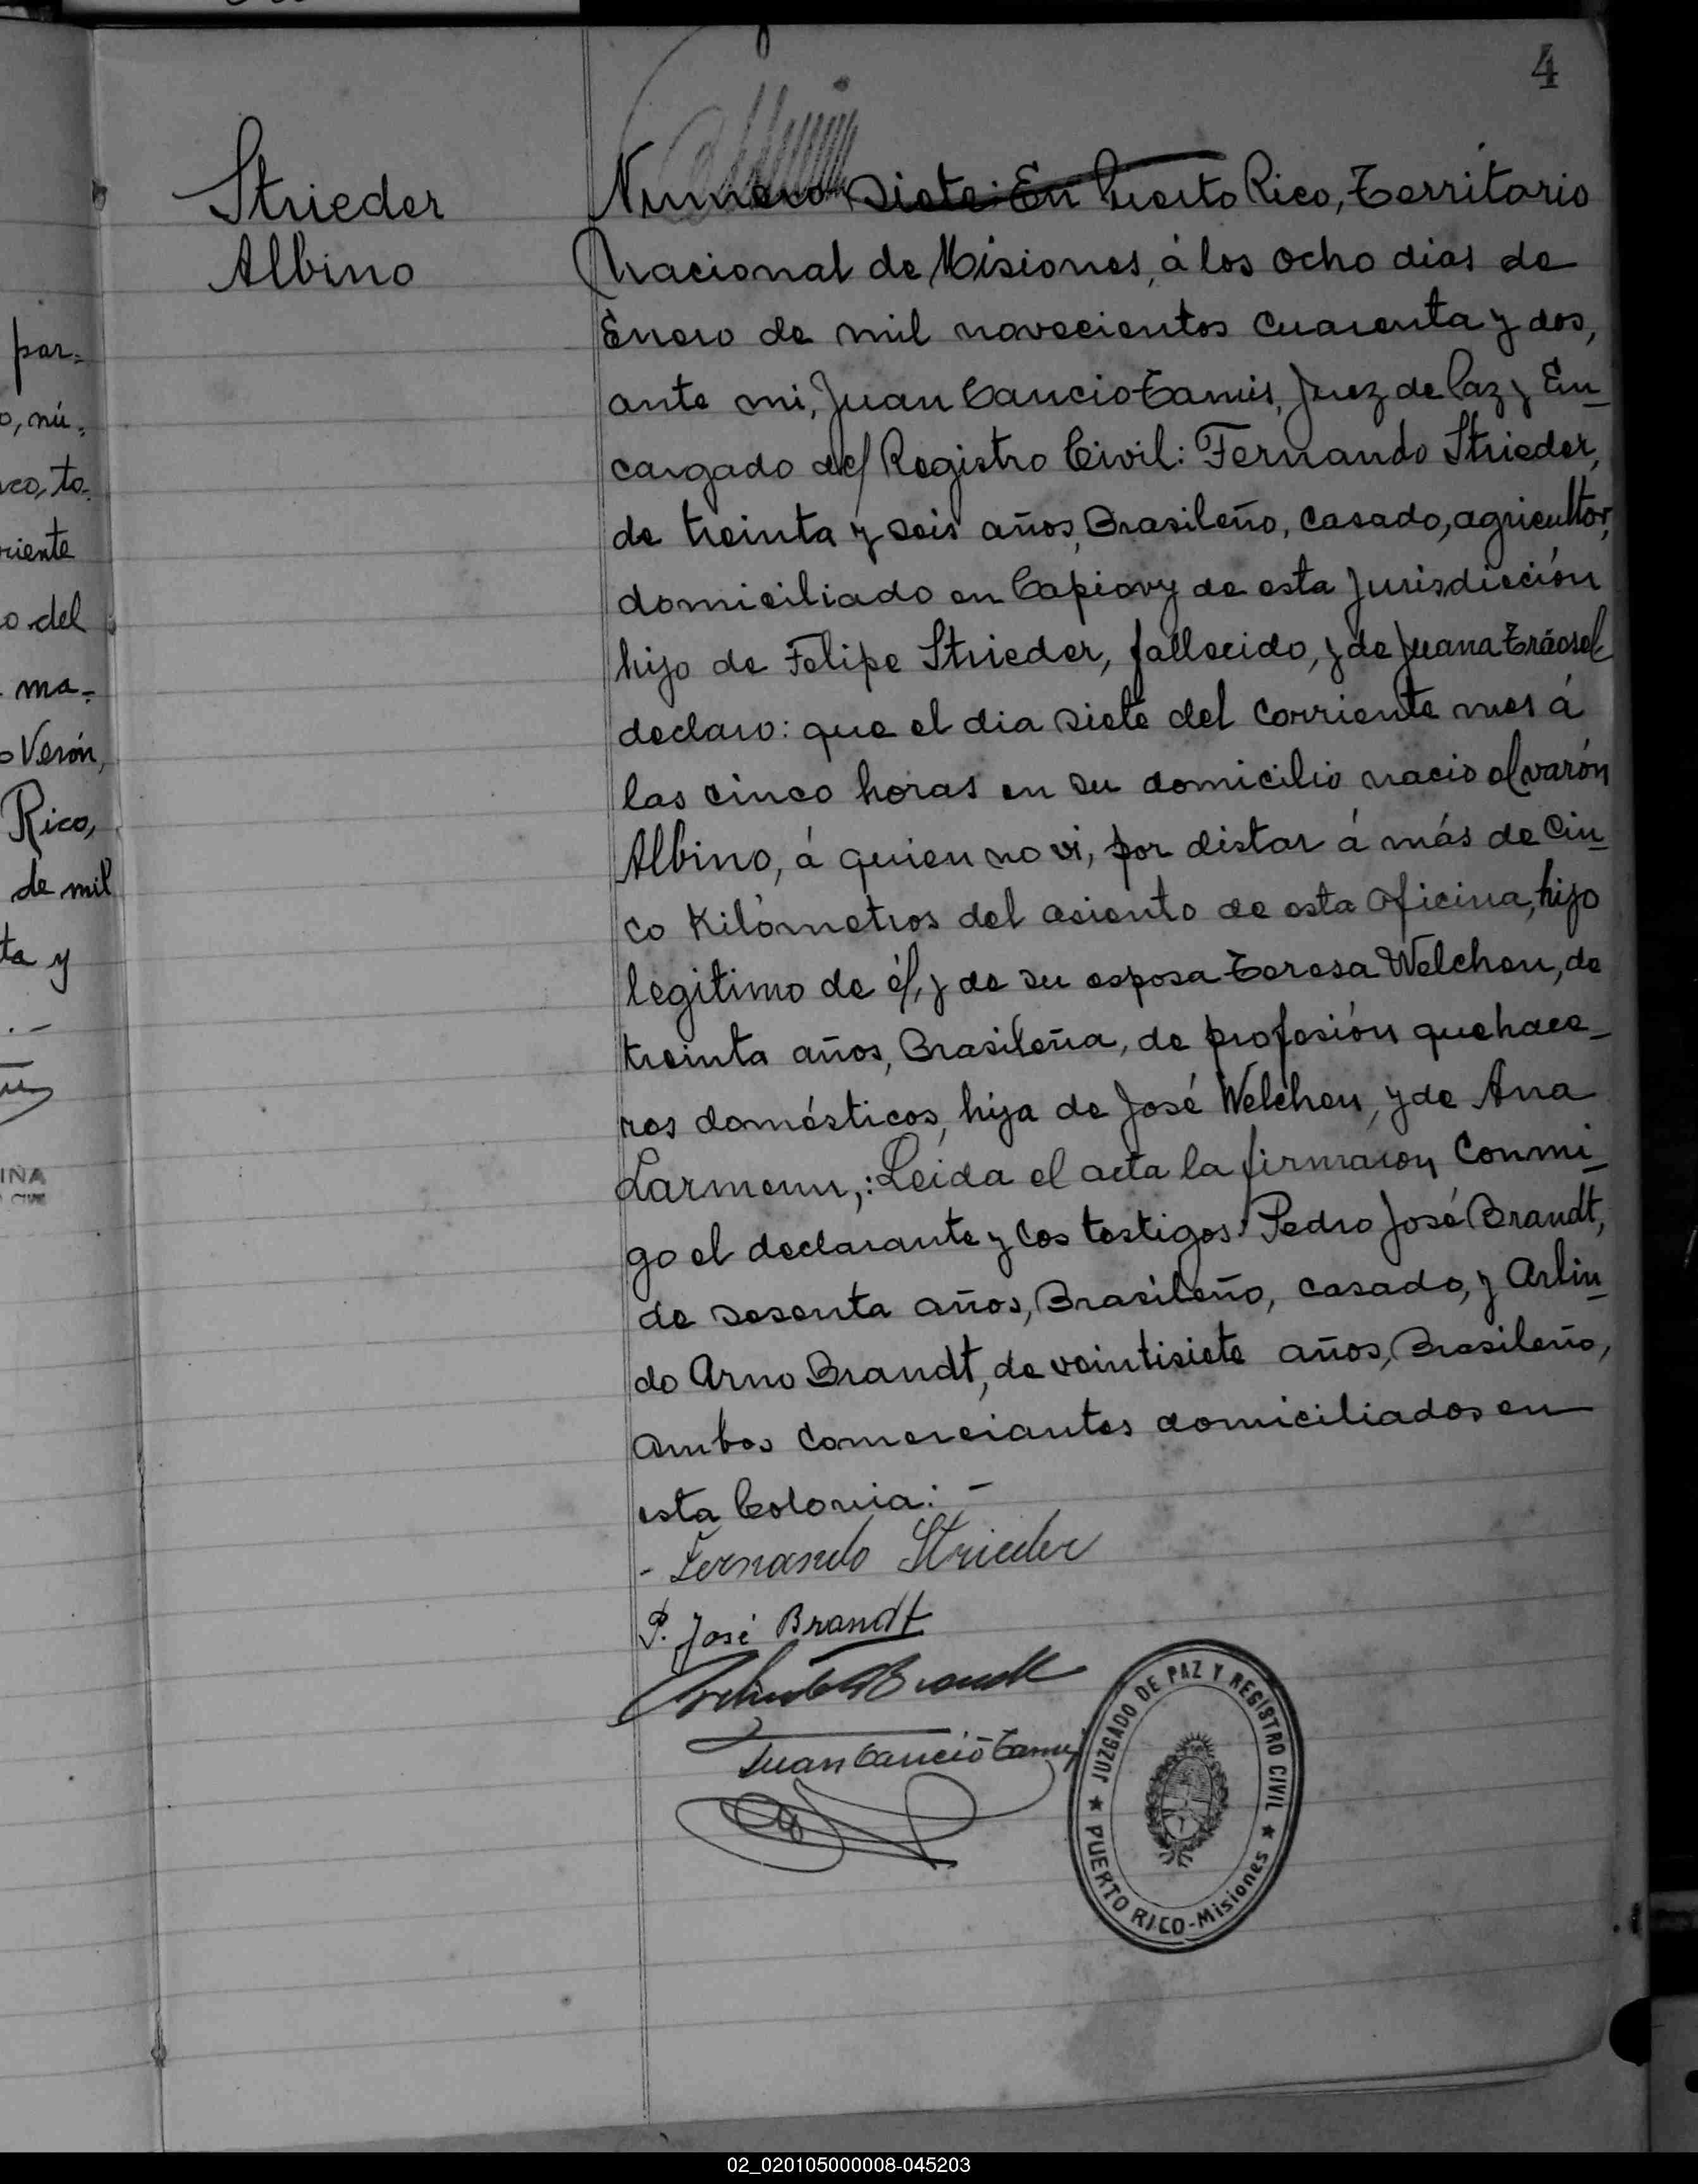 4
Strieder
Albino
Numero Siete: En Puerto Rico, Territorio
Nacional de Misiones, á los ocho dias de
Enero de mil novecientos cuarenta y dos,
ante mi, Juan Cancio Tamis, Juez de Paz y En_
cargado del Registro Civil: Fernando Strieder,
de treinta y seis años, Brasileño, casado, agricultor,
domiciliado en Capiovy de esta Jurisdicción
hijo de Felipe Strieder, fallecido, y de Juana
declaro: que el dia siete del corriente mes á
las cinco horas en su domicilio nacio el varón
Albino, á quien no vi, por distar á más de Cin_
co Kilómetros del asiento de esta Oficina, hijo
legitimo de él, y de su esposa Teresa Welchen, de
treinta años, Brasileña, de profesión quehace_
res domésticos, hija de José Welchen, y de Ana
Larmenn,: Leida el acta la firmaron Conmi_
go el declarante y los testigos Pedro José Brandt,
de sesenta años, Brasileño, casado, y Arlin_
do Arno Brandt, de veintisiete años, Brasileño,
ambos Comerciantes domiciliados en
esta Colonia: -
- Fernando Strieder
P. José Brandt
Arlindo A Brandt
Juan Cancio Tamis
JUZGADO DE PAZ Y REGISTRO CIVIL
★ PUERTO RICO-Misiones ★
par=
o, nú=
to=
riente
o del
ma=
o Verón,
Rico,
de mil
ta y
. -
INA
02_020105000008-045203